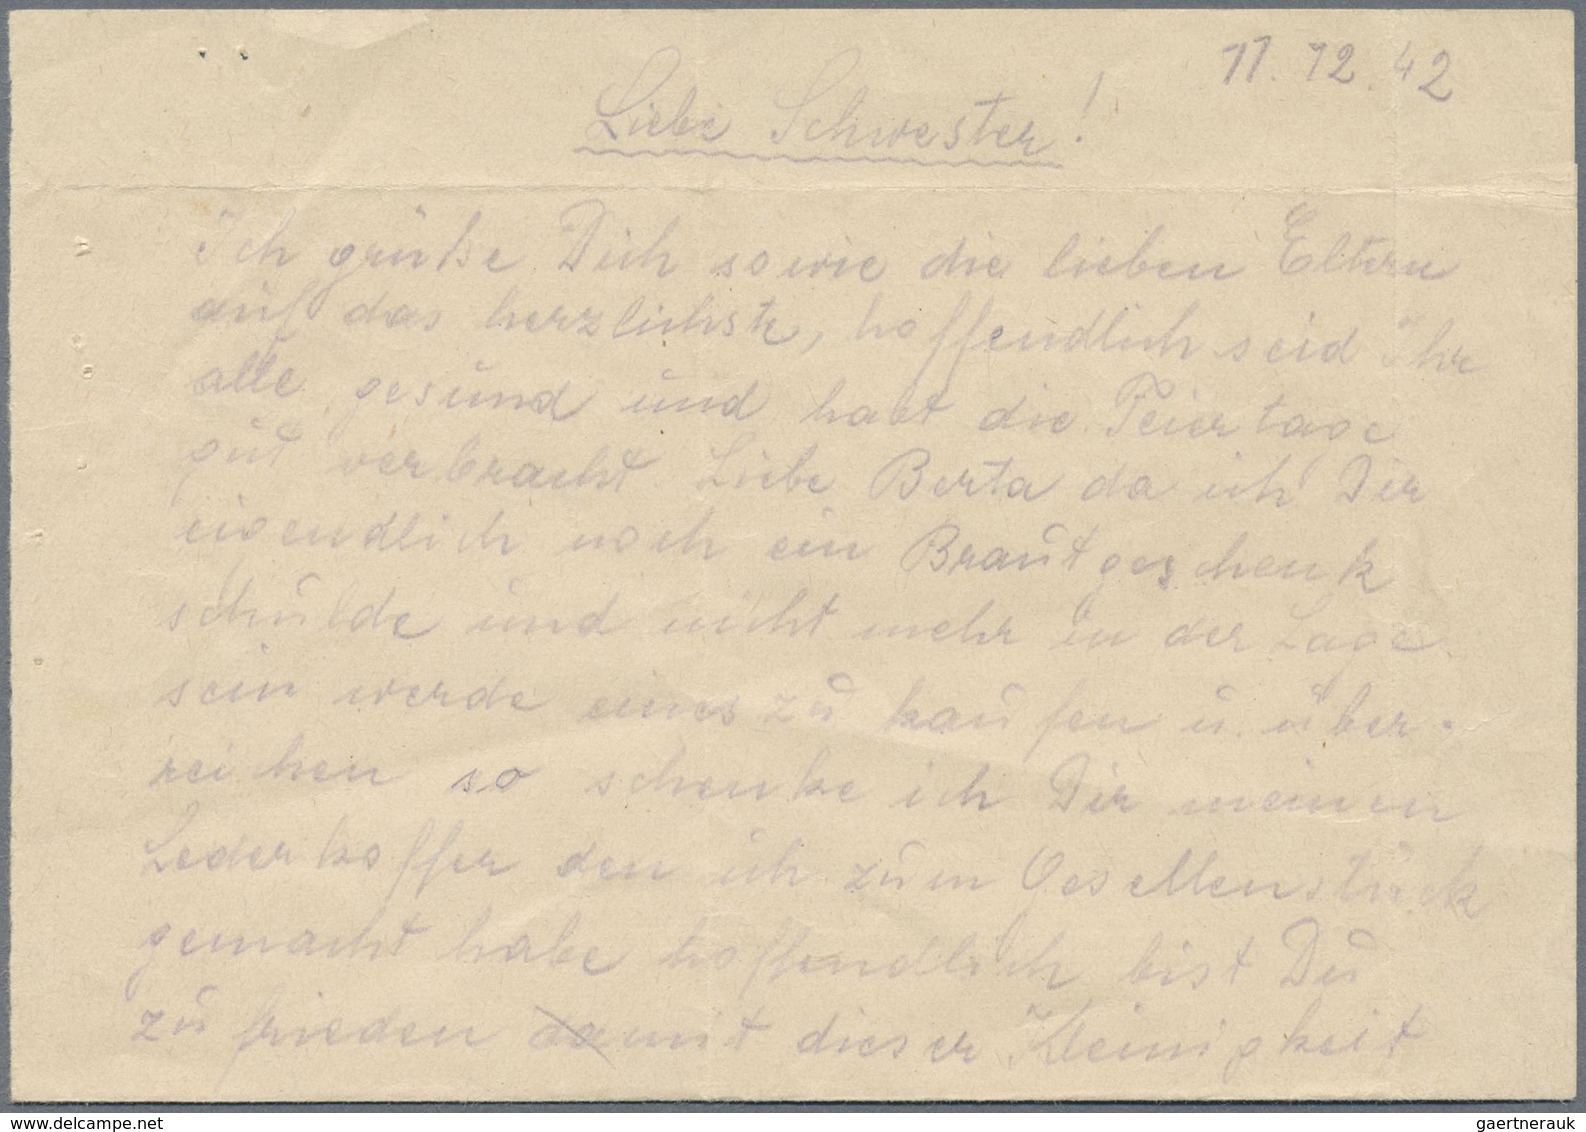 11.12.42
Liebe Schwester!
Ich grüße Dich sowie die lieben Eltern
auf das herzlichste, hoffendlich seid Ihr
alle gesund und habt die Feiertage
gut verbracht. Liebe Berta da ich Dir
eigendlich noch ein Brautgeschenk
schulde und nicht mehr in der Lage
sein werde eines zu kaufen u. über-
reichen so schenke ich Dir meinen
Lederkoffer den ich zum Gesellenstück
gemacht habe hoffendlich bist Du
zufrieden mit dieser Kleinigkeit
www.delcampe.net
gaertnerauk